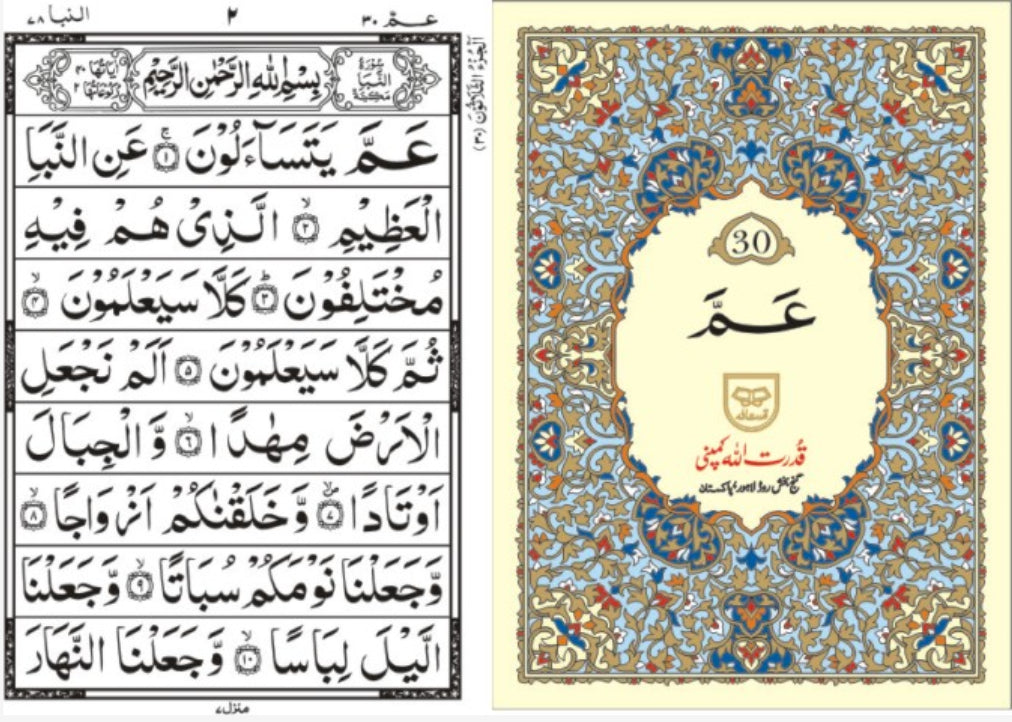 النبا ٧٨
٢
عـمّ ٣٠
اَلْجُزْءُ الثَّلَاثُوْنَ (٣٠)
سُوْرَةُ النَّبَاِ مَكِّيَّةٌ
بِسْمِ اللّٰهِ الرَّحْمٰنِ الرَّحِيْمِ
اٰيَاتُهَا ٤٠ رُكُوْعَاتُهَا ٢
عَمَّ يَتَسَآءَلُوْنَ ۚ ١ عَنِ النَّبَاِ
الْعَظِيْمِ ۙ ٢ الَّذِىْ هُمْ فِيْهِ
مُخْتَلِفُوْنَ ؕ ٣ كَلَّا سَيَعْلَمُوْنَ ۙ ٤
ثُمَّ كَلَّا سَيَعْلَمُوْنَ ٥ اَلَمْ نَجْعَلِ
الْاَرْضَ مِهٰدًا ۙ ٦ وَّ الْجِبَالَ
اَوْتَادًا ۪ۙ ٧ وَّخَلَقْنٰكُمْ اَزْوَاجًا ۙ ٨
وَّجَعَلْنَا نَوْمَكُمْ سُبَاتًا ۙ ٩ وَّجَعَلْنَا
الَّيْلَ لِبَاسًا ۙ ١٠ وَّجَعَلْنَا النَّهَارَ
منزل ٧
30
عَـمَّ
قدرت اللہ
قُدرت اللہ کمپنی
گنج بخش روڈ لاہور، پاکستان